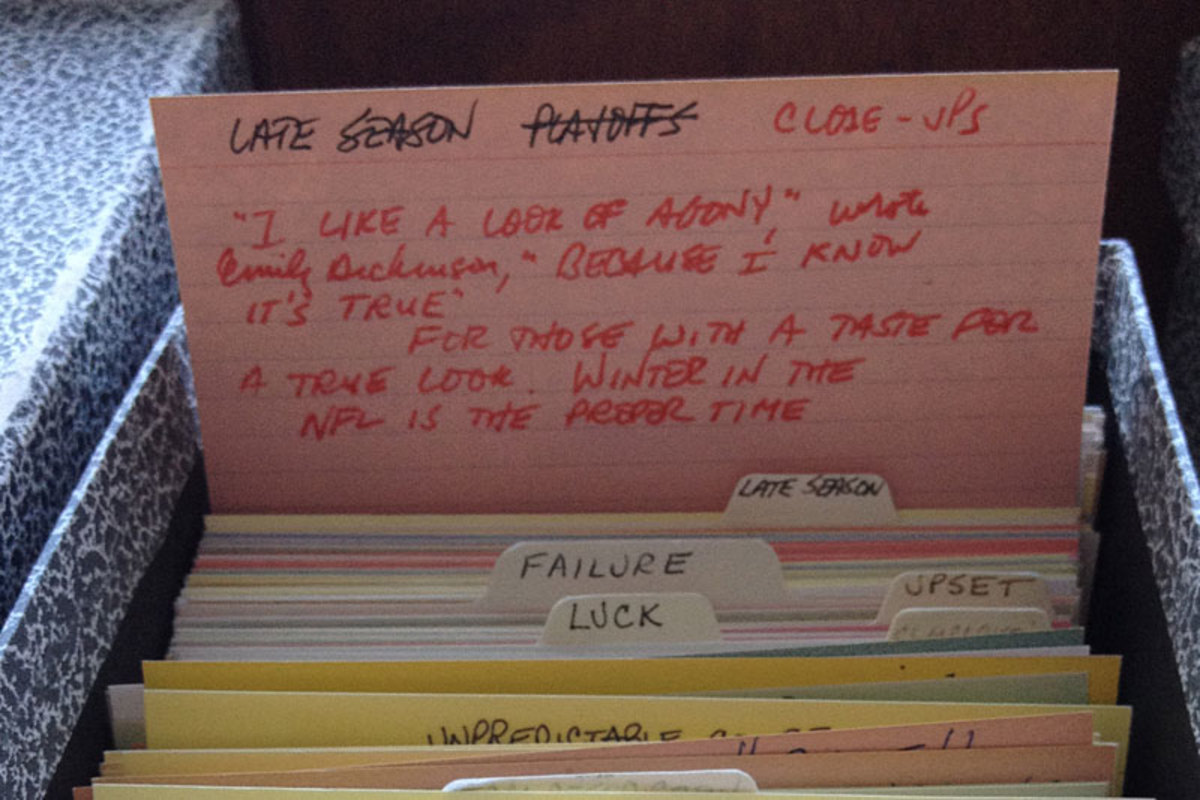 LATE SEASON PLAYOFFS CLOSE-UPS
"I LIKE A LOOK OF AGONY," wrote
Emily Dickinson, "BECAUSE I KNOW
IT'S TRUE"
FOR THOSE WITH A TASTE FOR
A TRUE LOOK. WINTER IN THE
NFL IS THE PROPER TIME
LATE SEASON
FAILURE
UPSET
LUCK
UNPREDICTABLE